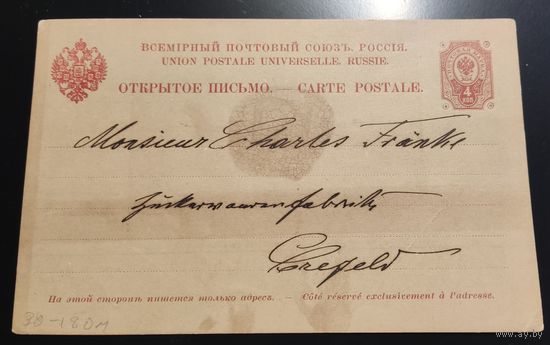 ВСЕМІРНЫЙ ПОЧТОВЫЙ СОЮЗЪ. РОССІЯ.
UNION POSTALE UNIVERSELLE. RUSSIE.
ОТКРЫТОЕ ПИСЬМО. — CARTE POSTALE.
4 КОП
Monsieur Charles Fränke
Zuckerwaarenfabrik
Crefeld
На этой сторонѣ пишется только адресъ. — Côté réservé exclusivement à l'adresse.
www.ay.by